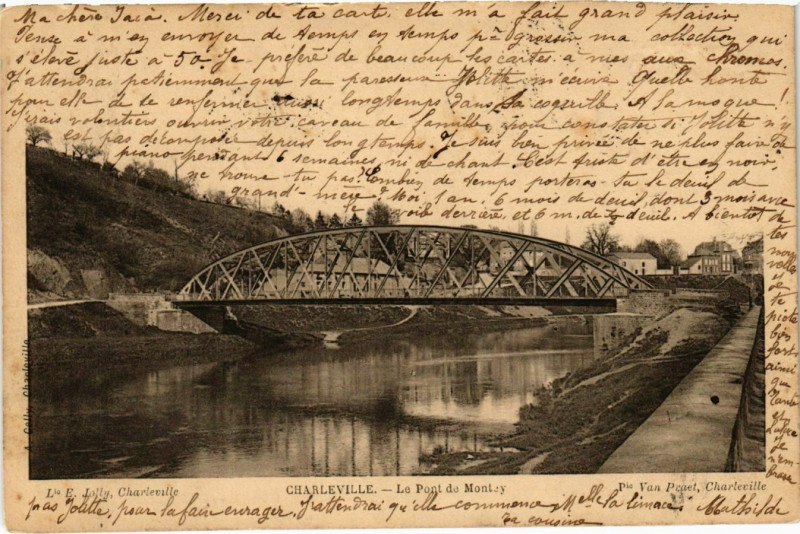 Ma chère Jaïa. Merci de ta carte, elle m'a fait grand plaisir.
Pense à m'en envoyer de temps en temps pr grossir ma collection qui
s'élève juste à 50. Je préfère de beaucoup les cartes à mes aux chromos.
J'attendrai patiemment que la paresseuse Jolitte m'écrive. Quelle honte
pour elle de se renfermer aussi longtemps dans sa coquille. A la moque !
J'irais volontiers ouvrir votre caveau de famille, pour constater si Jolitte n'y
est pas décomposée depuis longtemps. Je suis bien privée de ne plus faire de
piano pendant 6 semaines, ni de chant. C'est triste d'être en noir,
ne trouve-tu pas? Combien de temps porteras-tu le deuil de
grand'-mère? Moi, 1 an. 6 mois de deuil, dont 3 mois avec
le voile derrière, et 6 m. de ½ deuil. A bientôt de
tes
nouvelles
Je
te
bien
fort
ainsi
que
Tante
et
Luce
je
n'em-
brasse
pas Jolitte, pour la faire enrager. J'attendrai qu'elle commence, Melle la limace. Mathilde
ta cousine
A. Colly, Charleville
Lie E. Jolly, Charleville
CHARLEVILLE. — Le Pont de Montcy
Pie Van Peaet, Charleville